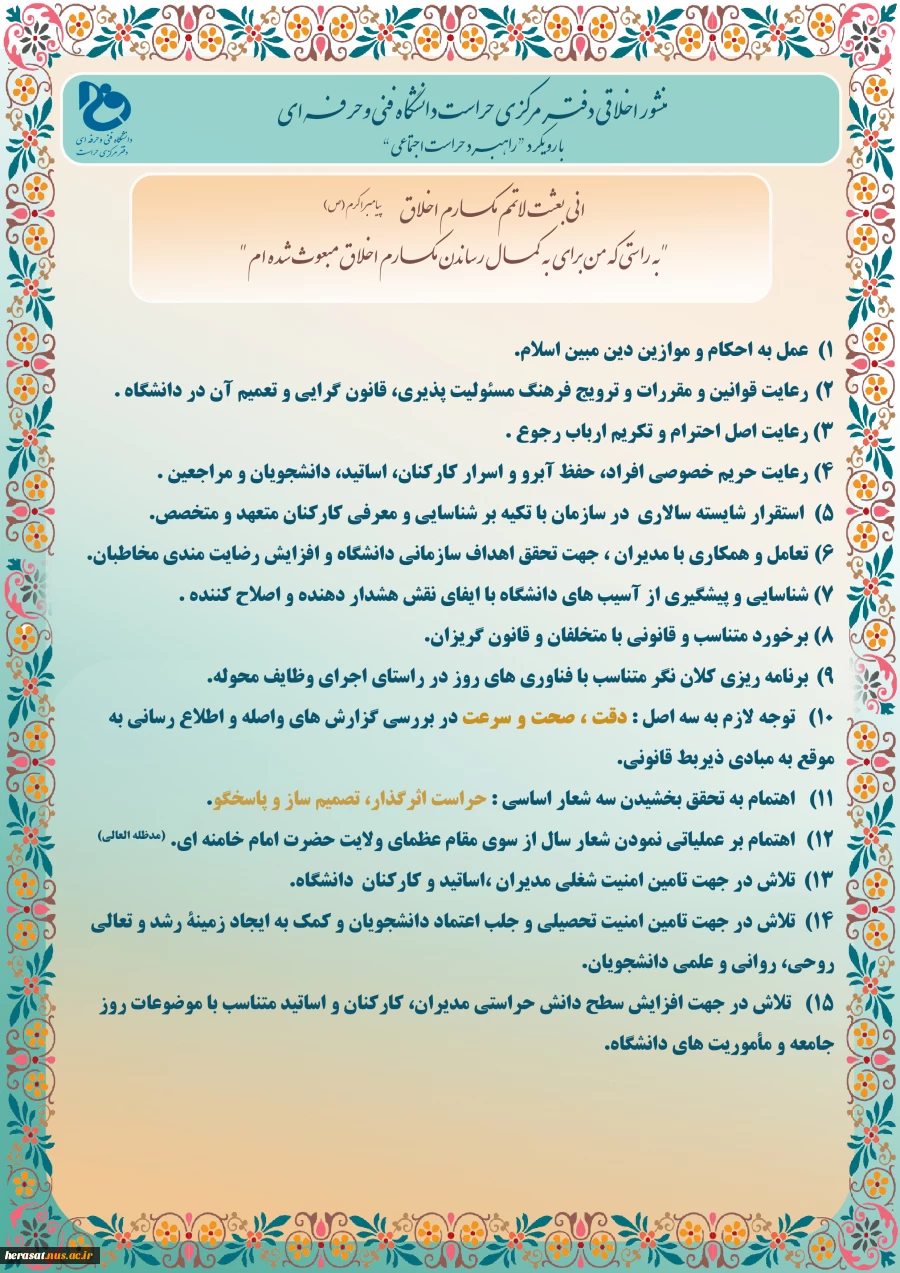 منشور اخلاقی دفتر مرکزی حراست دانشگاه فنی و حرفه ای
با رویکرد "راهبرد حراست اجتماعی"
دانشگاه فنی و حرفه ای
دفتر مرکزی حراست
انی بعثت لاتمم مکارم اخلاق پیامبر اکرم (ص)
"به راستی که من برای به کمال رساندن مکارم اخلاق مبعوث شده ام"
۱) عمل به احکام و موازین دین مبین اسلام.
۲) رعایت قوانین و مقررات و ترویج فرهنگ مسئولیت پذیری، قانون گرایی و تعمیم آن در دانشگاه .
۳) رعایت اصل احترام و تکریم ارباب رجوع .
۴) رعایت حریم خصوصی افراد، حفظ آبرو و اسرار کارکنان، اساتید، دانشجویان و مراجعین .
۵) استقرار شایسته سالاری در سازمان با تکیه بر شناسایی و معرفی کارکنان متعهد و متخصص.
۶) تعامل و همکاری با مدیران ، جهت تحقق اهداف سازمانی دانشگاه و افزایش رضایت مندی مخاطبان.
۷) شناسایی و پیشگیری از آسیب های دانشگاه با ایفای نقش هشدار دهنده و اصلاح کننده .
۸) برخورد متناسب و قانونی با متخلفان و قانون گریزان.
۹) برنامه ریزی کلان نگر متناسب با فناوری های روز در راستای اجرای وظایف محوله.
۱۰) توجه لازم به سه اصل : دقت ، صحت و سرعت در بررسی گزارش های واصله و اطلاع رسانی به
موقع به مبادی ذیربط قانونی.
۱۱) اهتمام به تحقق بخشیدن سه شعار اساسی : حراست اثرگذار، تصمیم ساز و پاسخگو.
۱۲) اهتمام بر عملیاتی نمودن شعار سال از سوی مقام عظمای ولایت حضرت امام خامنه ای. (مدظله العالی)
۱۳) تلاش در جهت تامین امنیت شغلی مدیران ،اساتید و کارکنان دانشگاه.
۱۴) تلاش در جهت تامین امنیت تحصیلی و جلب اعتماد دانشجویان و کمک به ایجاد زمینۀ رشد و تعالی
روحی، روانی و علمی دانشجویان.
۱۵) تلاش در جهت افزایش سطح دانش حراستی مدیران، کارکنان و اساتید متناسب با موضوعات روز
جامعه و مأموریت های دانشگاه.
herasat.nus.ac.ir